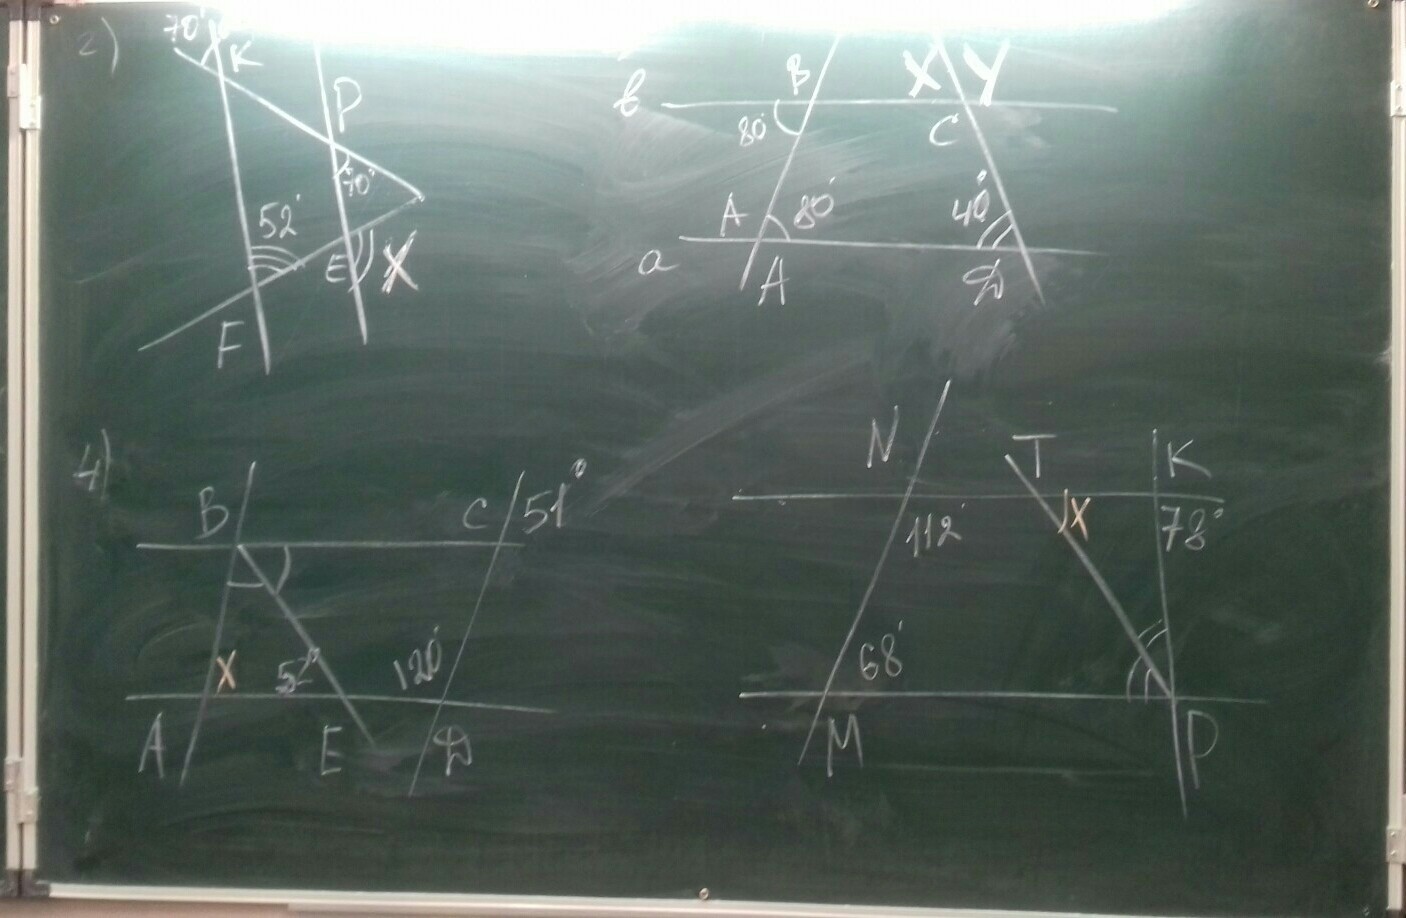 2)
70° K
P
70°
52°
E X
F
B X Y
b
80° C
A 80° 40°
a A D
4)
B C 51°
X 52° 120°
A E D
N T K
112° X 78°
68°
M P